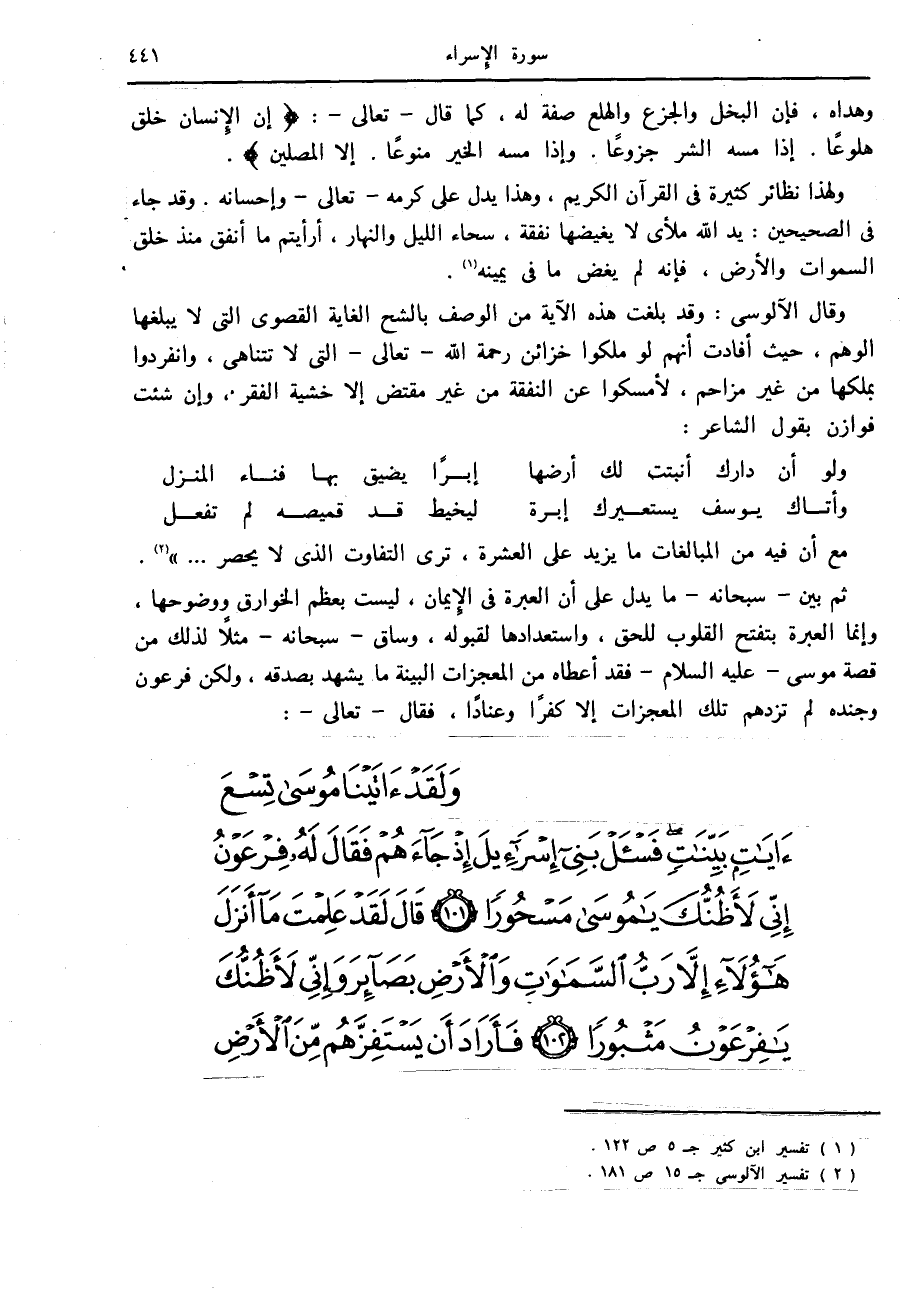 سورة الإسراء ٤٤١
وهداه ، فإن البخل والجزع والهلع صفة له ، كما قال – تعالى – : ﴿ إن الإنسان خلق
هلوعًا . إذا مسه الشر جزوعًا . وإذا مسه الخير منوعًا . إلا المصلين ﴾ .
ولهذا نظائر كثيرة فى القرآن الكريم ، وهذا يدل على كرمه – تعالى – وإحسانه . وقد جاء
فى الصحيحين : يد الله ملأى لا يغيضها نفقة ، سحاء الليل والنهار ، أرأيتم ما أنفق منذ خلق
السموات والأرض ، فإنه لم يغض ما فى يمينه(١) .
وقال الآلوسى : وقد بلغت هذه الآية من الوصف بالشح الغاية القصوى التى لا يبلغها
الوهم ، حيث أفادت أنهم لو ملكوا خزائن رحمة الله – تعالى – التى لا تتناهى ، وانفردوا
بملكها من غير مزاحم ، لأمسكوا عن النفقة من غير مقتض إلا خشية الفقر ، وإن شئت
فوازن بقول الشاعر :
ولو أن دارك أنبتت لك أرضها إبرًا يضيق بها فناء المنزل
وأتاك يوسف يستعيرك إبرة ليخيط قد قميصه لم تفعل
مع أن فيه من المبالغات ما يزيد على العشرة ، ترى التفاوت الذى لا يحصر ... »(٢) .
ثم بين – سبحانه – ما يدل على أن العبرة فى الإيمان ، ليست بعظم الخوارق ووضوحها ،
وإنما العبرة بتفتح القلوب للحق ، واستعدادها لقبوله ، وساق – سبحانه – مثلًا لذلك من
قصة موسى – عليه السلام – فقد أعطاه من المعجزات البينة ما يشهد بصدقه ، ولكن فرعون
وجنده لم تزدهم تلك المعجزات إلا كفرًا وعنادًا ، فقال – تعالى – :
وَلَقَدْ ءَاتَيْنَا مُوسَىٰ تِسْعَ
ءَايَٰتٍۭ بَيِّنَٰتٍۖ فَسْـَٔلْ بَنِىٓ إِسْرَٰٓءِيلَ إِذْ جَآءَهُمْ فَقَالَ لَهُۥ فِرْعَوْنُ
إِنِّى لَأَظُنُّكَ يَٰمُوسَىٰ مَسْحُورًا ﴿١٠١﴾ قَالَ لَقَدْ عَلِمْتَ مَآ أَنزَلَ
هَٰٓؤُلَآءِ إِلَّا رَبُّ ٱلسَّمَٰوَٰتِ وَٱلْأَرْضِ بَصَآئِرَ وَإِنِّى لَأَظُنُّكَ
يَٰفِرْعَوْنُ مَثْبُورًا ﴿١٠٢﴾ فَأَرَادَ أَن يَسْتَفِزَّهُم مِّنَ ٱلْأَرْضِ
( ١ ) تفسير ابن كثير جـ ٥ ص ١٢٢ .
( ٢ ) تفسير الآلوسى جـ ١٥ ص ١٨١ .